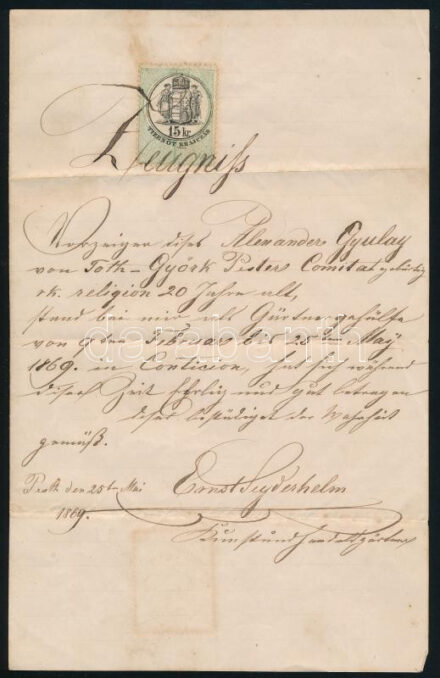 15 kr
TIZENÖT KRAJCZÁR
Zeugniß
Vorzeiger dises Alexander Gyulay
von Toth-Györk Pester Comitat gebürtig
rk. religion 20 Jahre alt,
stand bei mir als Gärtnergehülfe
von 9ten Februar bis 25ten May
1869. in Condicion, hat sich während
diser Zeit Ehrlig und gut betragen
diser bestädiget der Wahrheit
gemäß.
Pesth den 25t Mai
1869.
Ernst Seyderhelm
Kunst und handelsgärtner
darabanth